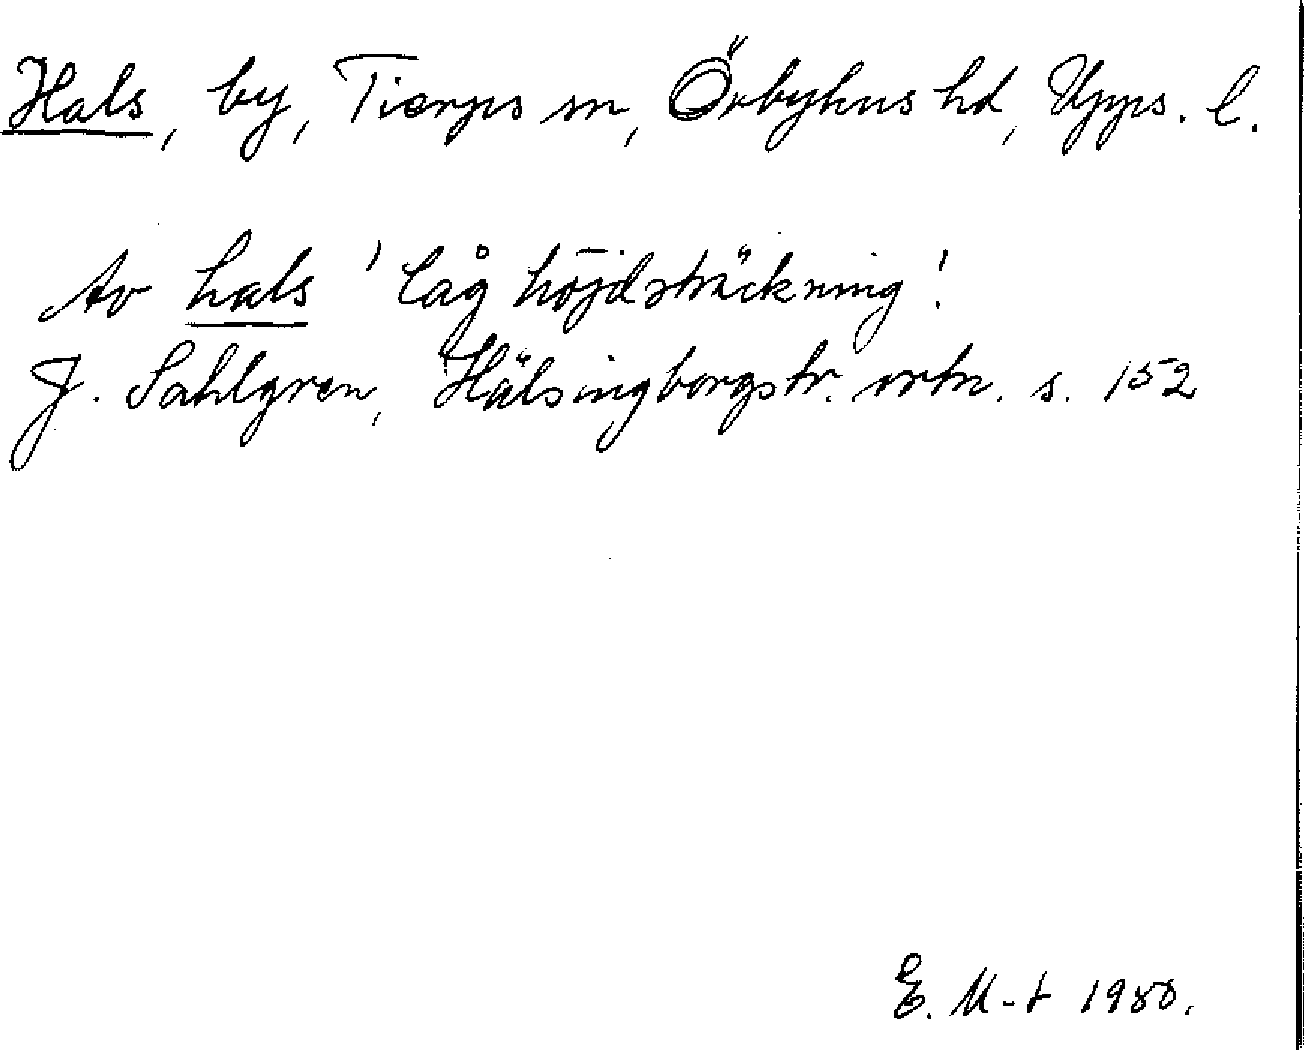 Hals, by, Tierps sn, Örbyhus hd, Upps. l.
Av hals 'låg höjdsträckning'.
J. Sahlgren, Hälsingborgstr. ortn. s. 152
E. M-t 1980.